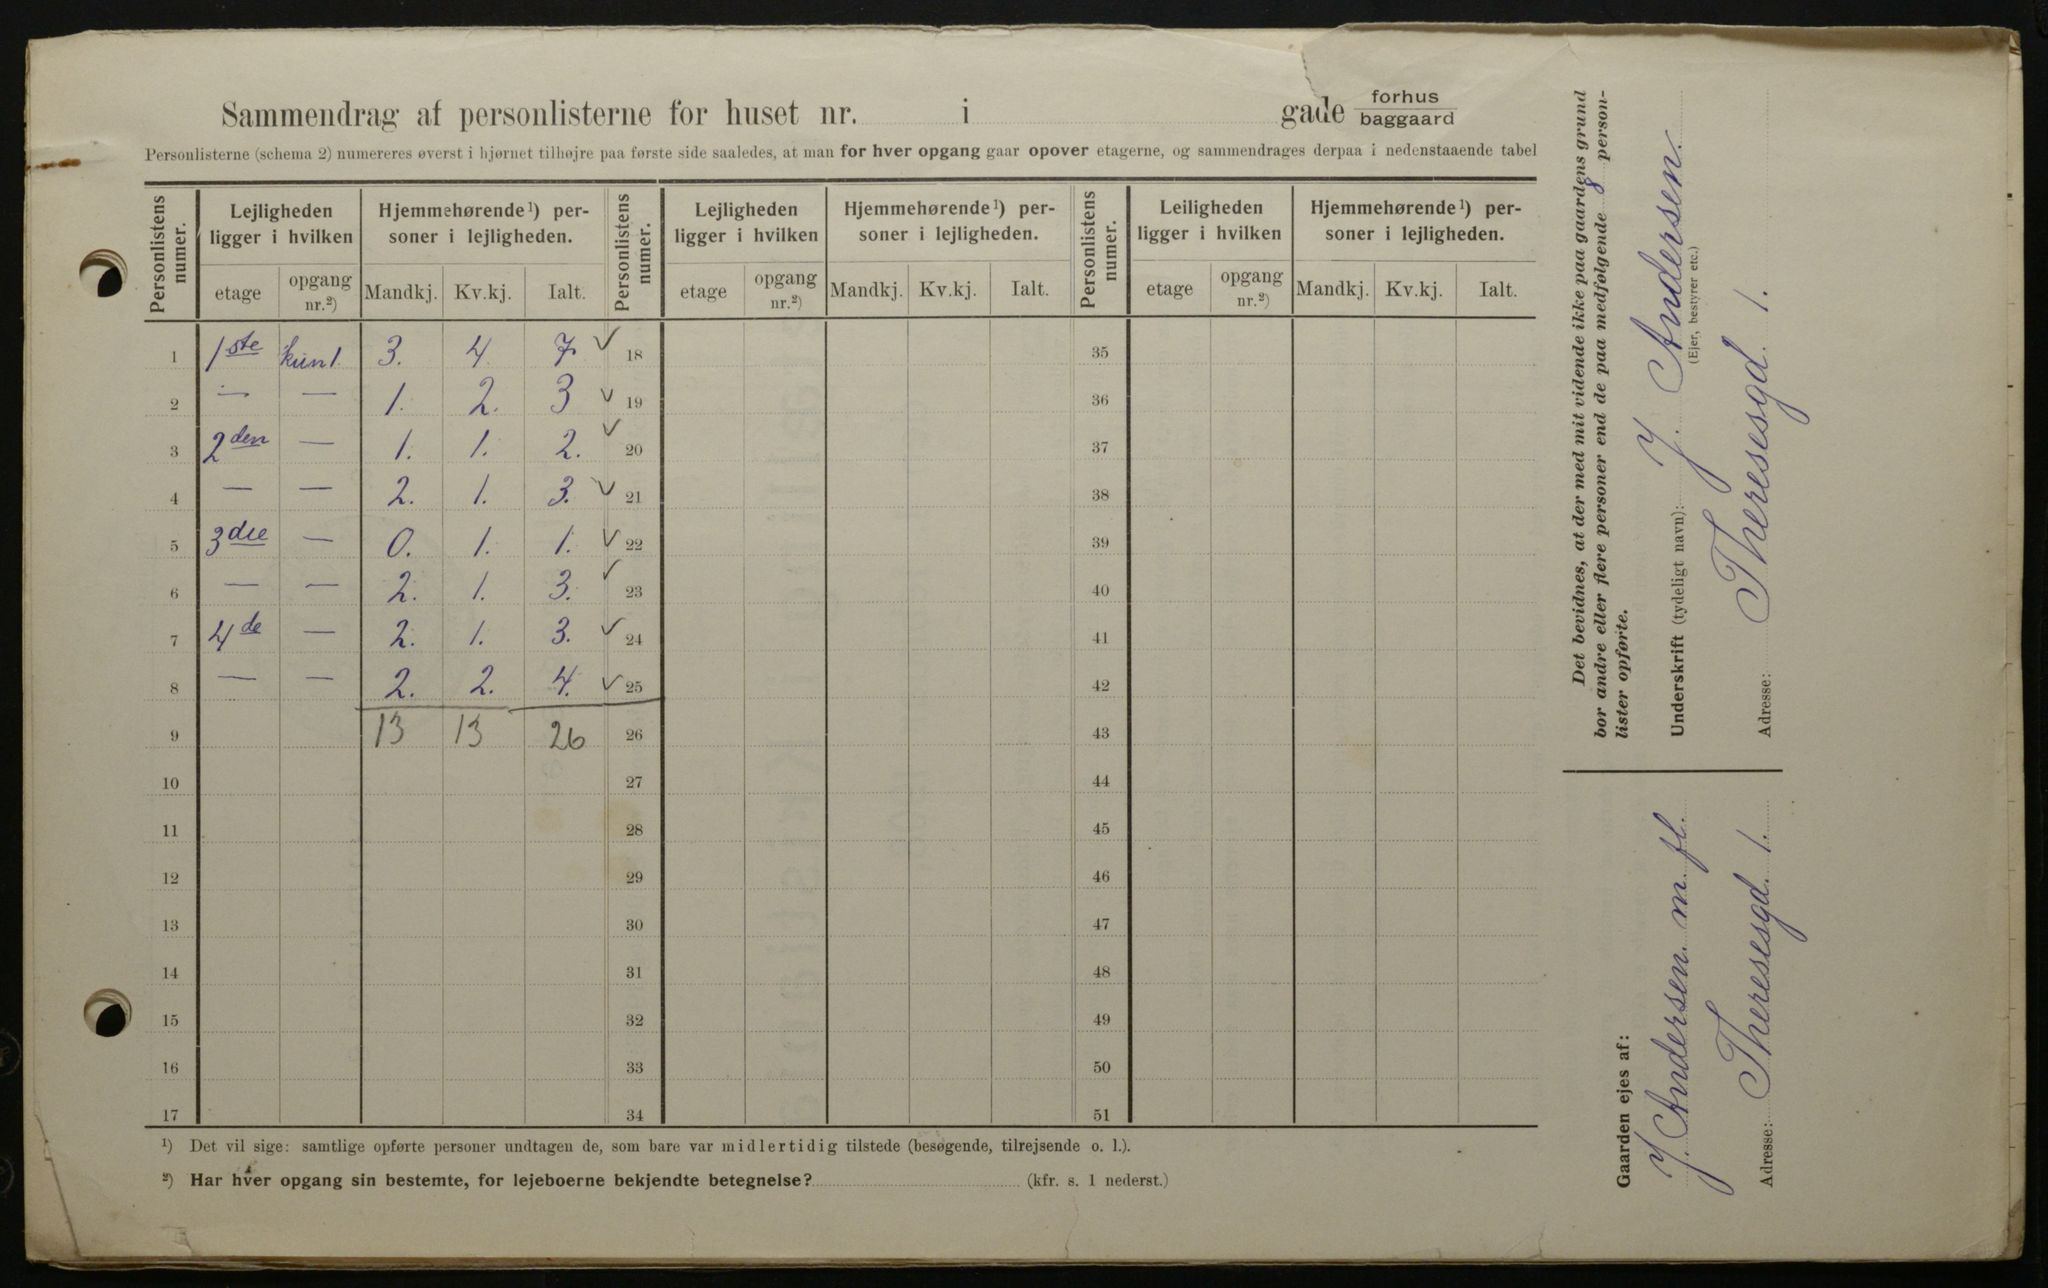 Sammendrag af personlisterne for huset nr. i gade forhus baggaard
Personlisterne (schema 2) numereres øverst i hjørnet tilhøjre paa første side saaledes, at man for hver opgang gaar opover etagerne, og sammendrages derpaa i nedenstaaende tabel
Personlistens numer. Lejligheden ligger i hvilken Hjemmehørende¹) personer i lejligheden. Personlistens numer. Lejligheden ligger i hvilken Hjemmehørende¹) personer i lejligheden. Personlistens numer. Leiligheden ligger i hvilken Hjemmehørende¹) personer i lejligheden.
etage opgang nr.²) Mandkj. Kv.kj. Ialt. etage opgang nr.²) Mandkj. Kv.kj. Ialt. etage opgang nr.²) Mandkj. Kv.kj. Ialt.
1 1ste kun 1. 3. 4. 7. ✓ 18 35
2 — — 1. 2. 3 ✓ 19 36
3 2den — 1. 1. 2. ✓ 20 37
4 — — 2. 1. 3. ✓ 21 38
5 3die — 0. 1. 1. ✓ 22 39
6 — — 2. 1. 3. ✓ 23 40
7 4de — 2. 1. 3. ✓ 24 41
8 — — 2. 2. 4. ✓ 25 42
9 13 13 26 26 43
10 27 44
11 28 45
12 29 46
13 30 47
14 31 48
15 32 49
16 33 50
17 34 51
¹) Det vil sige: samtlige opførte personer undtagen de, som bare var midlertidig tilstede (besøgende, tilrejsende o. l.).
²) Har hver opgang sin bestemte, for lejeboerne bekjendte betegnelse? (kfr. s. 1 nederst.)
Det bevidnes, at der med mit vidende ikke paa gaardens grund
bor andre eller flere personer end de paa medfølgende 8 person-
lister opførte.
Underskrift (tydeligt navn): J. Andersen.
(Ejer, bestyrer etc.)
Adresse: Theresesgd. 1.
Gaarden ejes af:
J. Andersen m. fl.
Adresse: Theresesgd. 1.